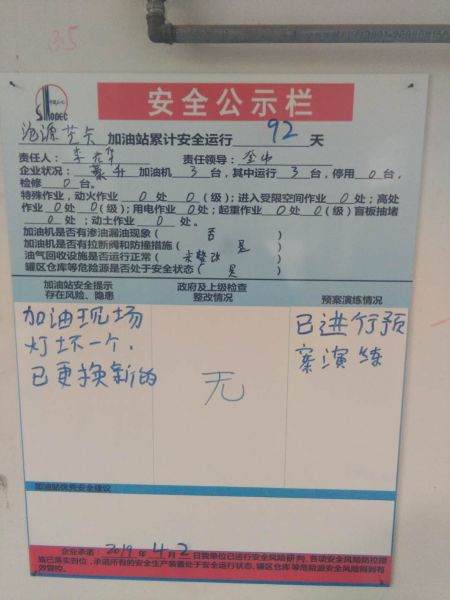 35
SINOPEC
安全公示栏
沧源芒卡 加油站累计安全运行 92 天
责任人: 李 责任领导:
企业状况: 加油机 3 台,其中运行 3 台,停用 0 台,
检修 0 台。
特殊作业,动火作业 0 处 0 (级);进入受限空间作业 0 处;高处
作业 0 处 0 (级);用电作业 0 处;起重作业 0 处 0 (级)盲板抽堵
0 处;动土作业 0 处。
加油机是否有渗油漏油现象( 否
加油机是否有拉断阀和防撞措施( 是
油气回收设施是否运行正常( 未整改
罐区仓库等危险源是否处于安全状态( 是 )
加油站安全提示
存在风险、隐患
政府及上级检查
整改情况
预案演练情况
加油现场
灯坏一个,
已更换新的
无
已进行预
案演练
加油站优秀安全建议
企业承诺: 2019 年 4 月 2 日我单位已进行安全风险研判,各项安全风险防控措
施已落实到位,承诺所有的安全生产装置处于安全运行状态,罐区仓库等危险源安全风险得到有
效管控。